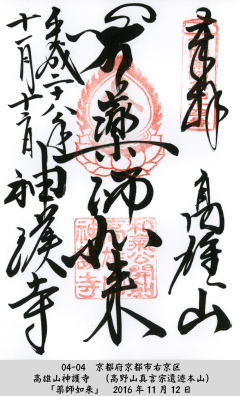 奉拝
高雄山
薬師如来
平成二十八年
十一月十二日
神護寺
和気公開創
04-04 京都府京都市右京区
高雄山神護寺 (高野山真言宗遺迹本山)
「薬師如来」 2016年11月12日